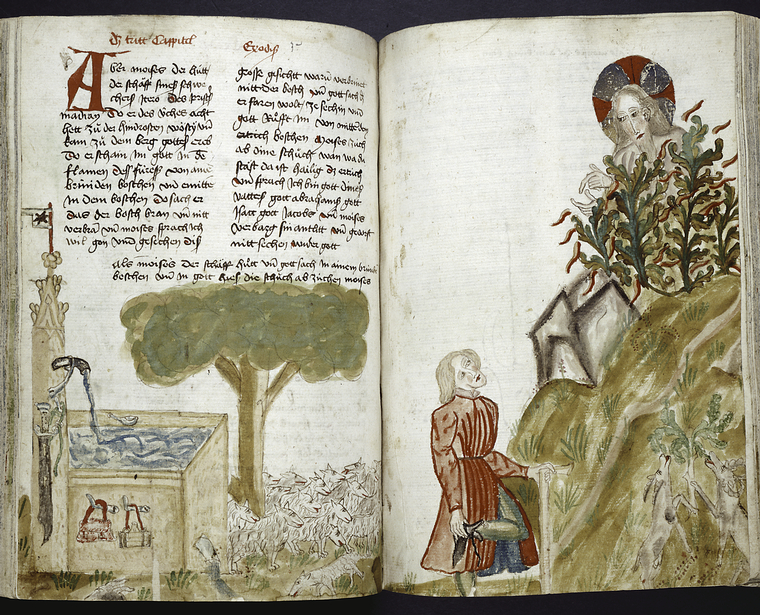 Das tritt Cappittel
Exodus
Aber moises der hütt
der schäff sines schwe
chers Jetro des pristers
madian Do er des viches acht
hett Zu der hindrosten wösty vn
kam zu dem berg gottes oreb
Do erscham im gott in de
flamen dess fürs von ains
bründen boschen vn emitte
in dem boschen do sach er
das der bosch bran vn nit
verbran vn moises sprach ich
wil gon vnd gesechen dis
grosse gesicht warum verbrinnet
nitt der bosch vn gott sach
er faren wolt ze sechin vnd
gott Rüfft im von mitten dem
boschen moises züch
ab dine schüch wan wa du
stast da ist hailig ertrich
vnd sprach Ich bin gott dines
vatters gott abrahams gott
Isacc gott Jacobs vn moises
verbarg sin antlitt vn getorst
nitt sechen wider gott
als moises der schäff hütt vn gott sach in ainem brünenden
boschen vn in gott hies die schüch ab züchen moises